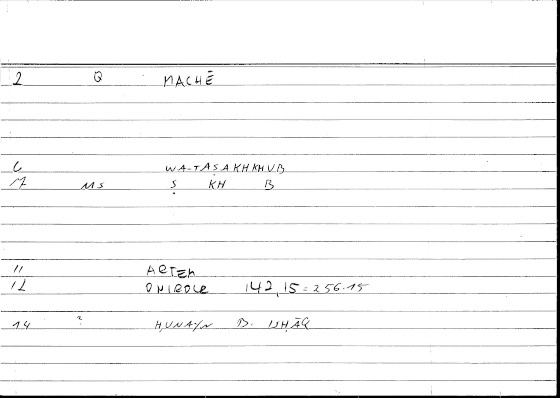 2 Q MACHĒ
6 WA-TAṢAKHKHUB
17 MS Ṣ KH B
11 ARTEM
12 ONIROCR 142,15 = 256.15
14 ? ḤUNAYN B. ISḤĀQ